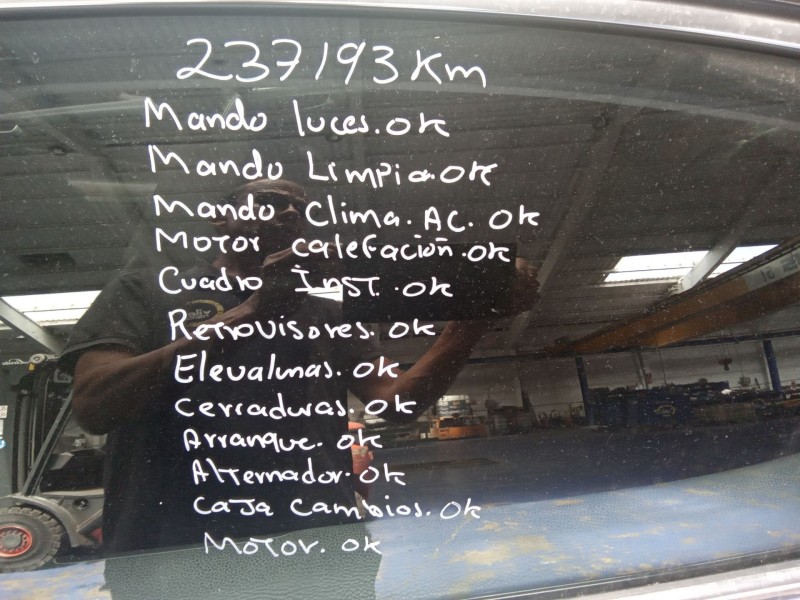 237193 Km
Mando luces. OK
Mando Limpia. OK
Mando Clima. AC. OK
Motor calefación. OK
Cuadro INST. OK
Retrovisores. OK
Elevalunas. OK
Cerraduras. OK
Arranque. OK
Alternador. OK
Caja Cambios. OK
Motor. OK